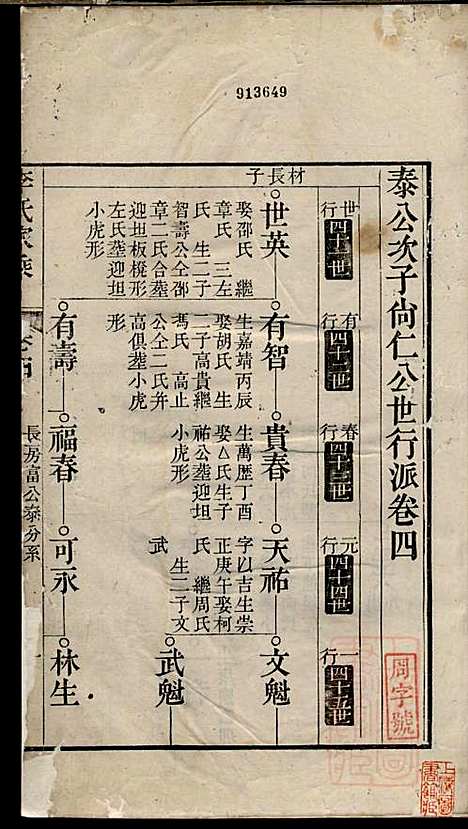 913649
泰公次子尙仁公世行派卷四
世行 四十一世
有行 四十二世
春行 四十三世
元行 四十四世
一行 四十五世
材長子
世英
娶邵氏 繼
章氏 三左
氏 生二子
智壽公仝邵
章二氏合葬
迎坦板櫈形
左氏葬迎坦
小虎形
有智
生嘉靖丙辰
娶胡氏 生
二子高貴繼
馮氏 高止
公仝二氏并
高俱葬小虎
形
貴春
生萬歷丁酉
娶△氏生子
祐公葬迎坦
小虎形
天祐
字以吉生崇
正庚午娶柯
氏 繼周氏
生二子文
武
文魁
武魁
有壽
福春
可永
林生
李氏家乘
長房富公泰分系
周字號